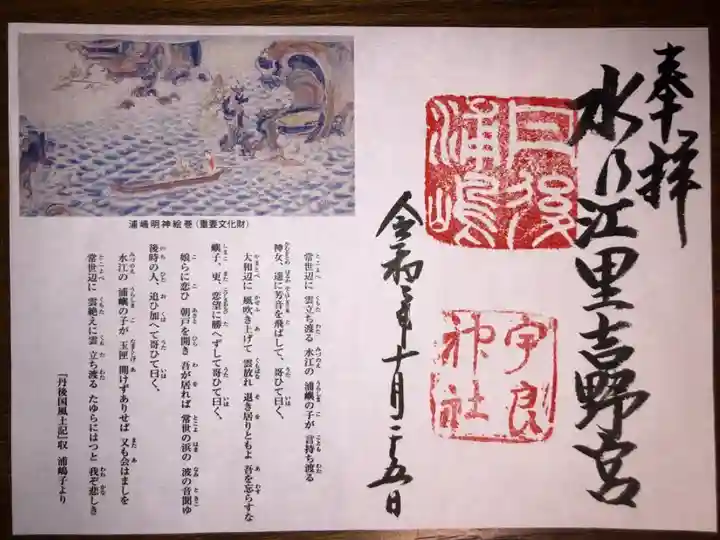 奉拝
水乃江里
宮
丹後
浦嶋
宇良
神社
令和
十月二十五日
浦嶋明神絵巻(重要文化財)
常世辺に 雲立ち渡る 水江の 浦嶼の子が 言持ち渡る
神女、遥に芳音を飛ばして、哥ひて曰く、
大和辺に 風吹き上げて 雲放れ 退き居りともよ 吾を忘らすな
嶼子、更、恋望に勝へずして哥ひて曰く、
娘らに恋ひ 朝戸を開き 吾が居れば 常世の浜の 波の音聞ゆ
後時の人、追ひ加へて哥ひて曰く、
水江の 浦嶼の子が 玉匣 開けずありせば 又も会はましを
常世辺に 雲絶えに雲 立ち渡る たゆらにはつと 我ぞ悲しき
『丹後国風土記』収 浦嶋子より